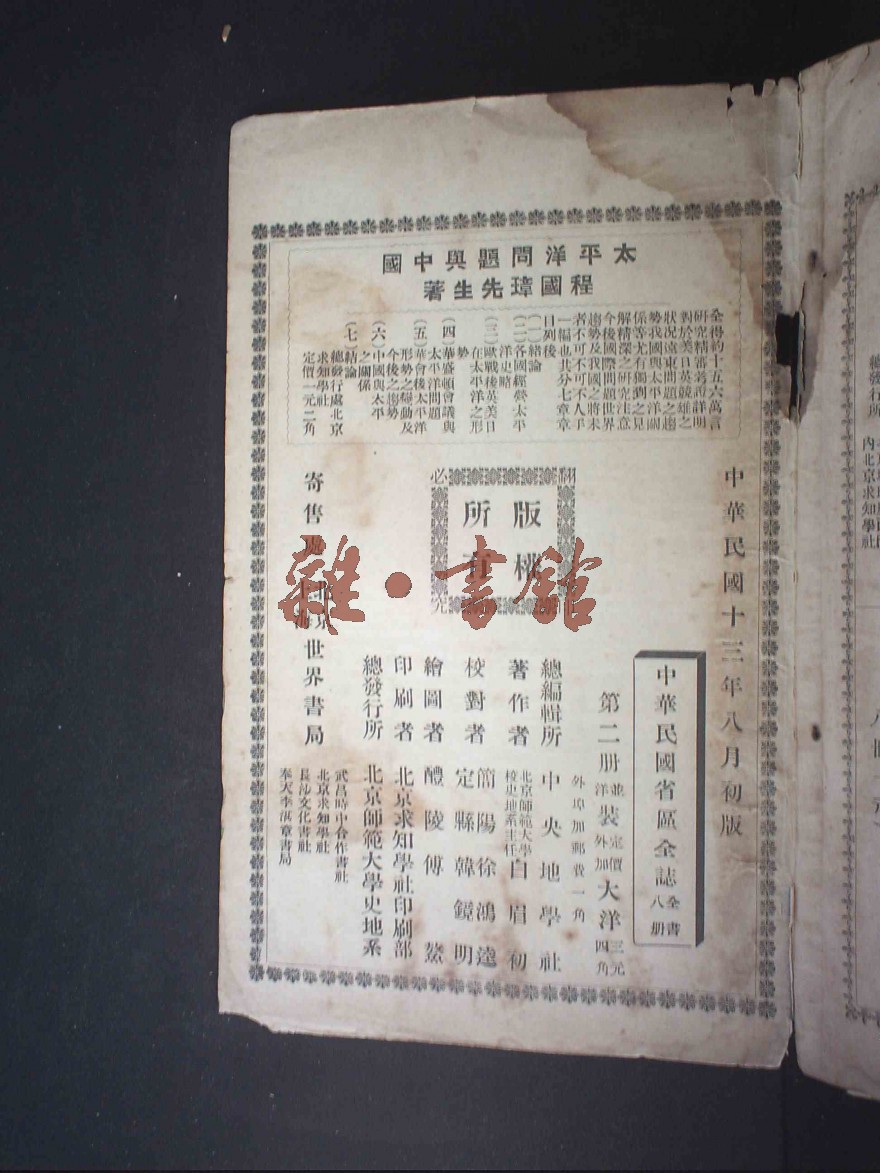 太平洋問題與中國
程國璋先生著
全得約十五六萬言
研究精審考證詳明
對於美日英競雄之
狀況遠東問題之趨
勢我國與太平洋關
係等尤有獨到之見
解精深之研究注意
今後國際問題世界
趨勢及我國之將來
者不可不可不人手
一編也共分七章章
目列後
(一)緒論
(二)各國經營太平
洋史略
(三)歐戰後英美日
在太平洋之形
勢
(四)華盛頓會議與
太平洋問題
(五)華會後太平洋
形勢之變動及
今後之趨勢
(六)中國與太平
之關係
(七)結論
總發行處北京
求知學社
定價一元二角
中華民國十三年八月初版
翻
必
究
版權
所有
中華民國省區全誌
全書
八册
第二册
並
洋
裝
定價
外加
大洋
三元
四角
外埠加郵費一角
總編輯所 中央地學社
著作者
北京師範大學
校史地系主任
白眉初
校對者
簡陽徐鴻逵
定縣韓鏡明
繪圖者 醴陵傅鰲
印刷者 北京求知學社印刷部
總發行所 北京師範大學史地系
寄售處
北京
上海
世界書局
武昌時中合作書社
北京求知學社
長沙文化書社
奉天李湛章書局
雜·書館
總發行所
內北京求知學社